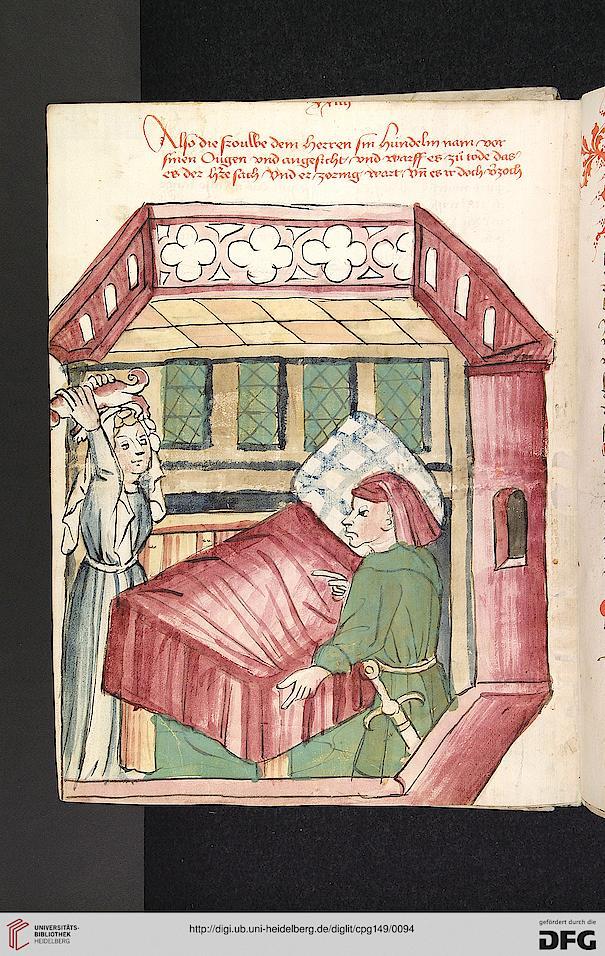 Also die frouwe dem herren sin hündelin nam vor
sinen Ougen vnd angesicht / vnd warff es zü tode das
es der hre sach / Vnd er zornig wart / vn̄ es ir doch v̄zoch
UNIVERSITÄTS-
BIBLIOTHEK
HEIDELBERG
http://digi.ub.uni-heidelberg.de/diglit/cpg149/0094
gefördert durch die
DFG